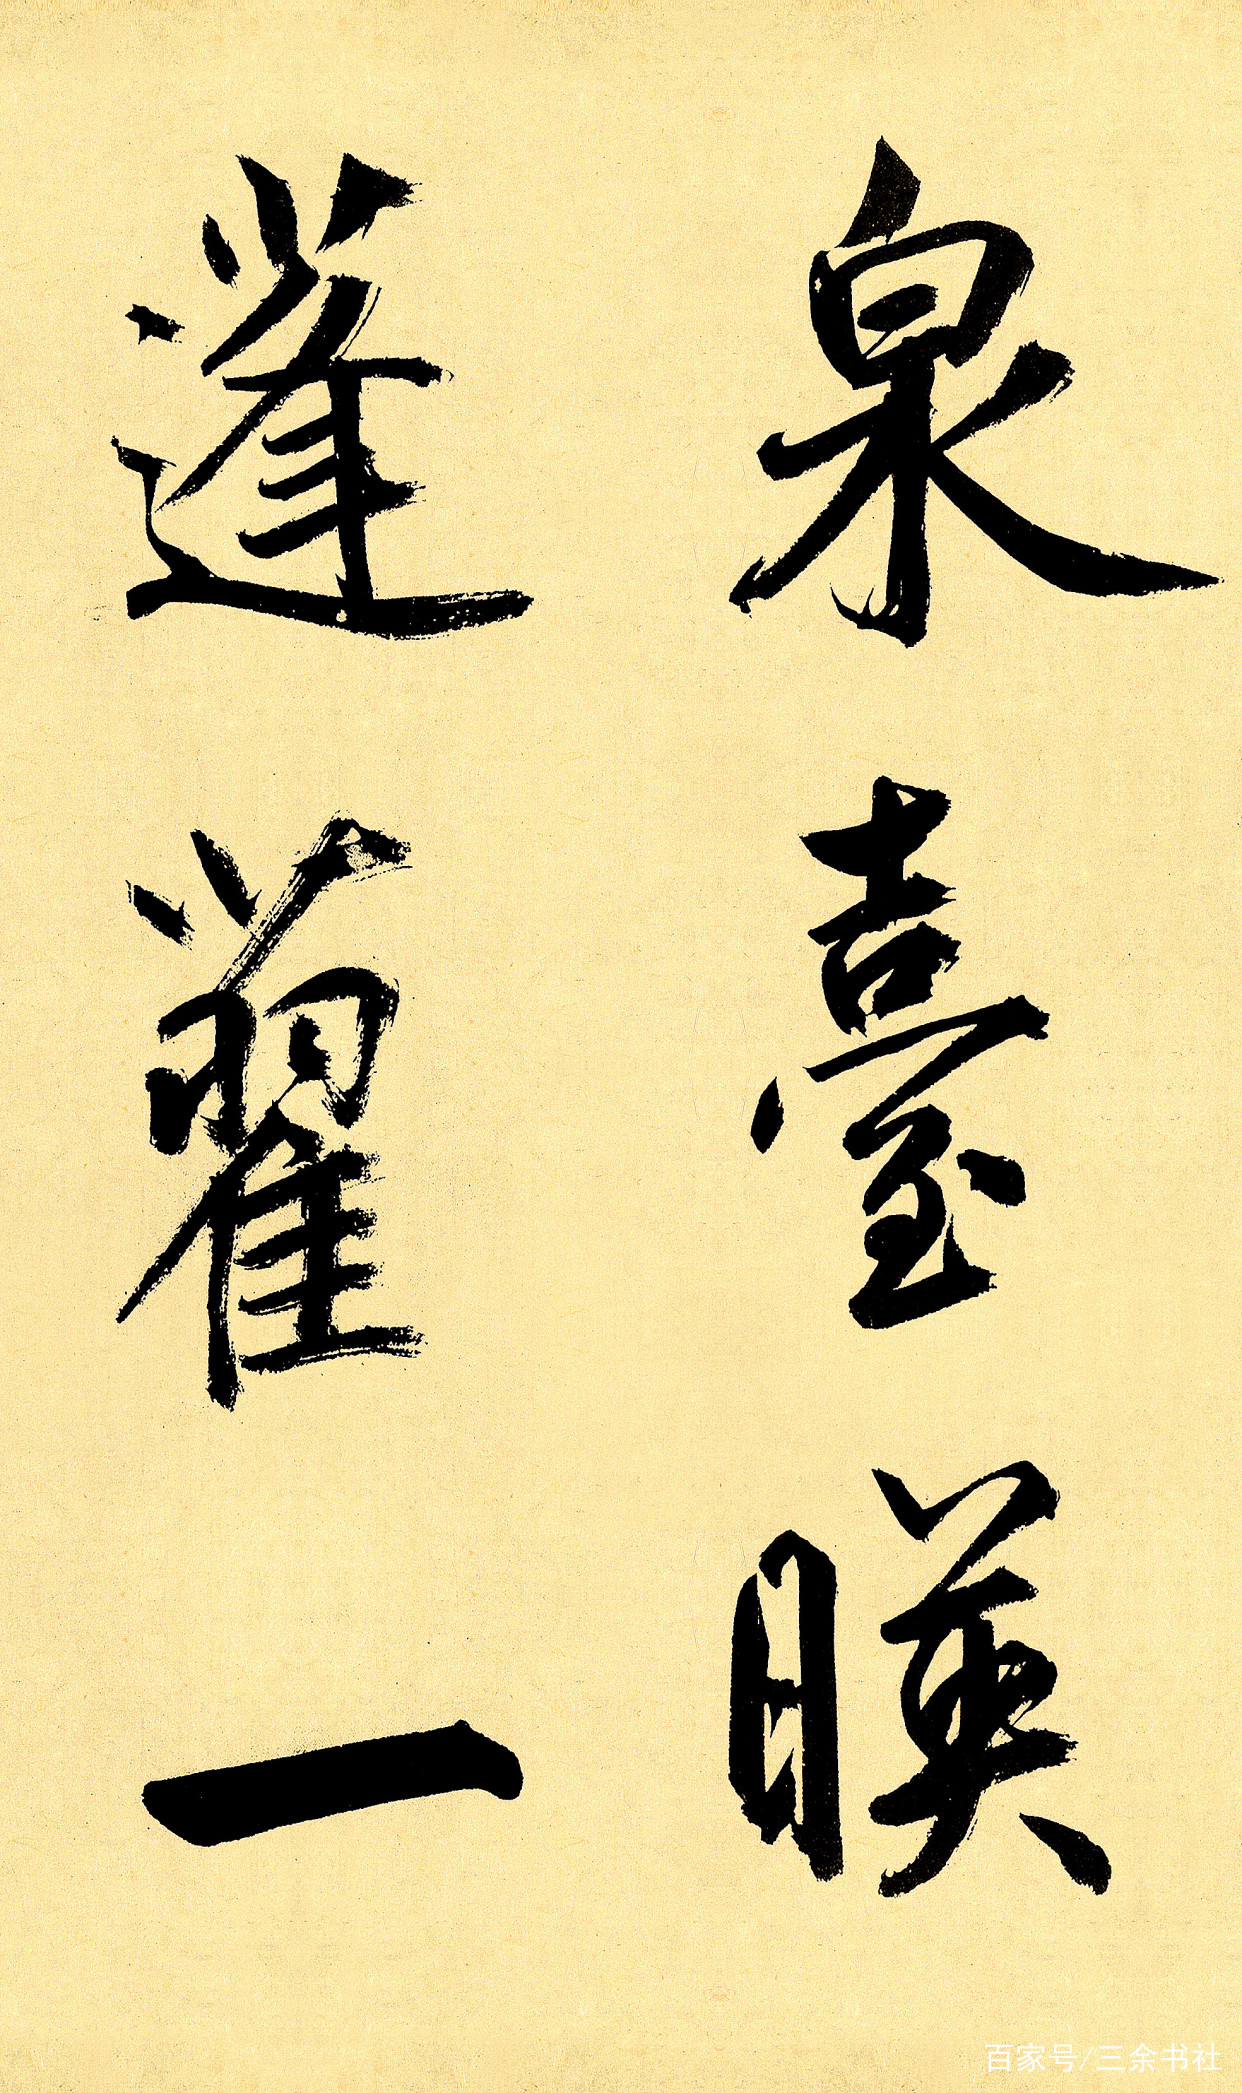 泉臺暎
蓬藋一
百家号/三余书社